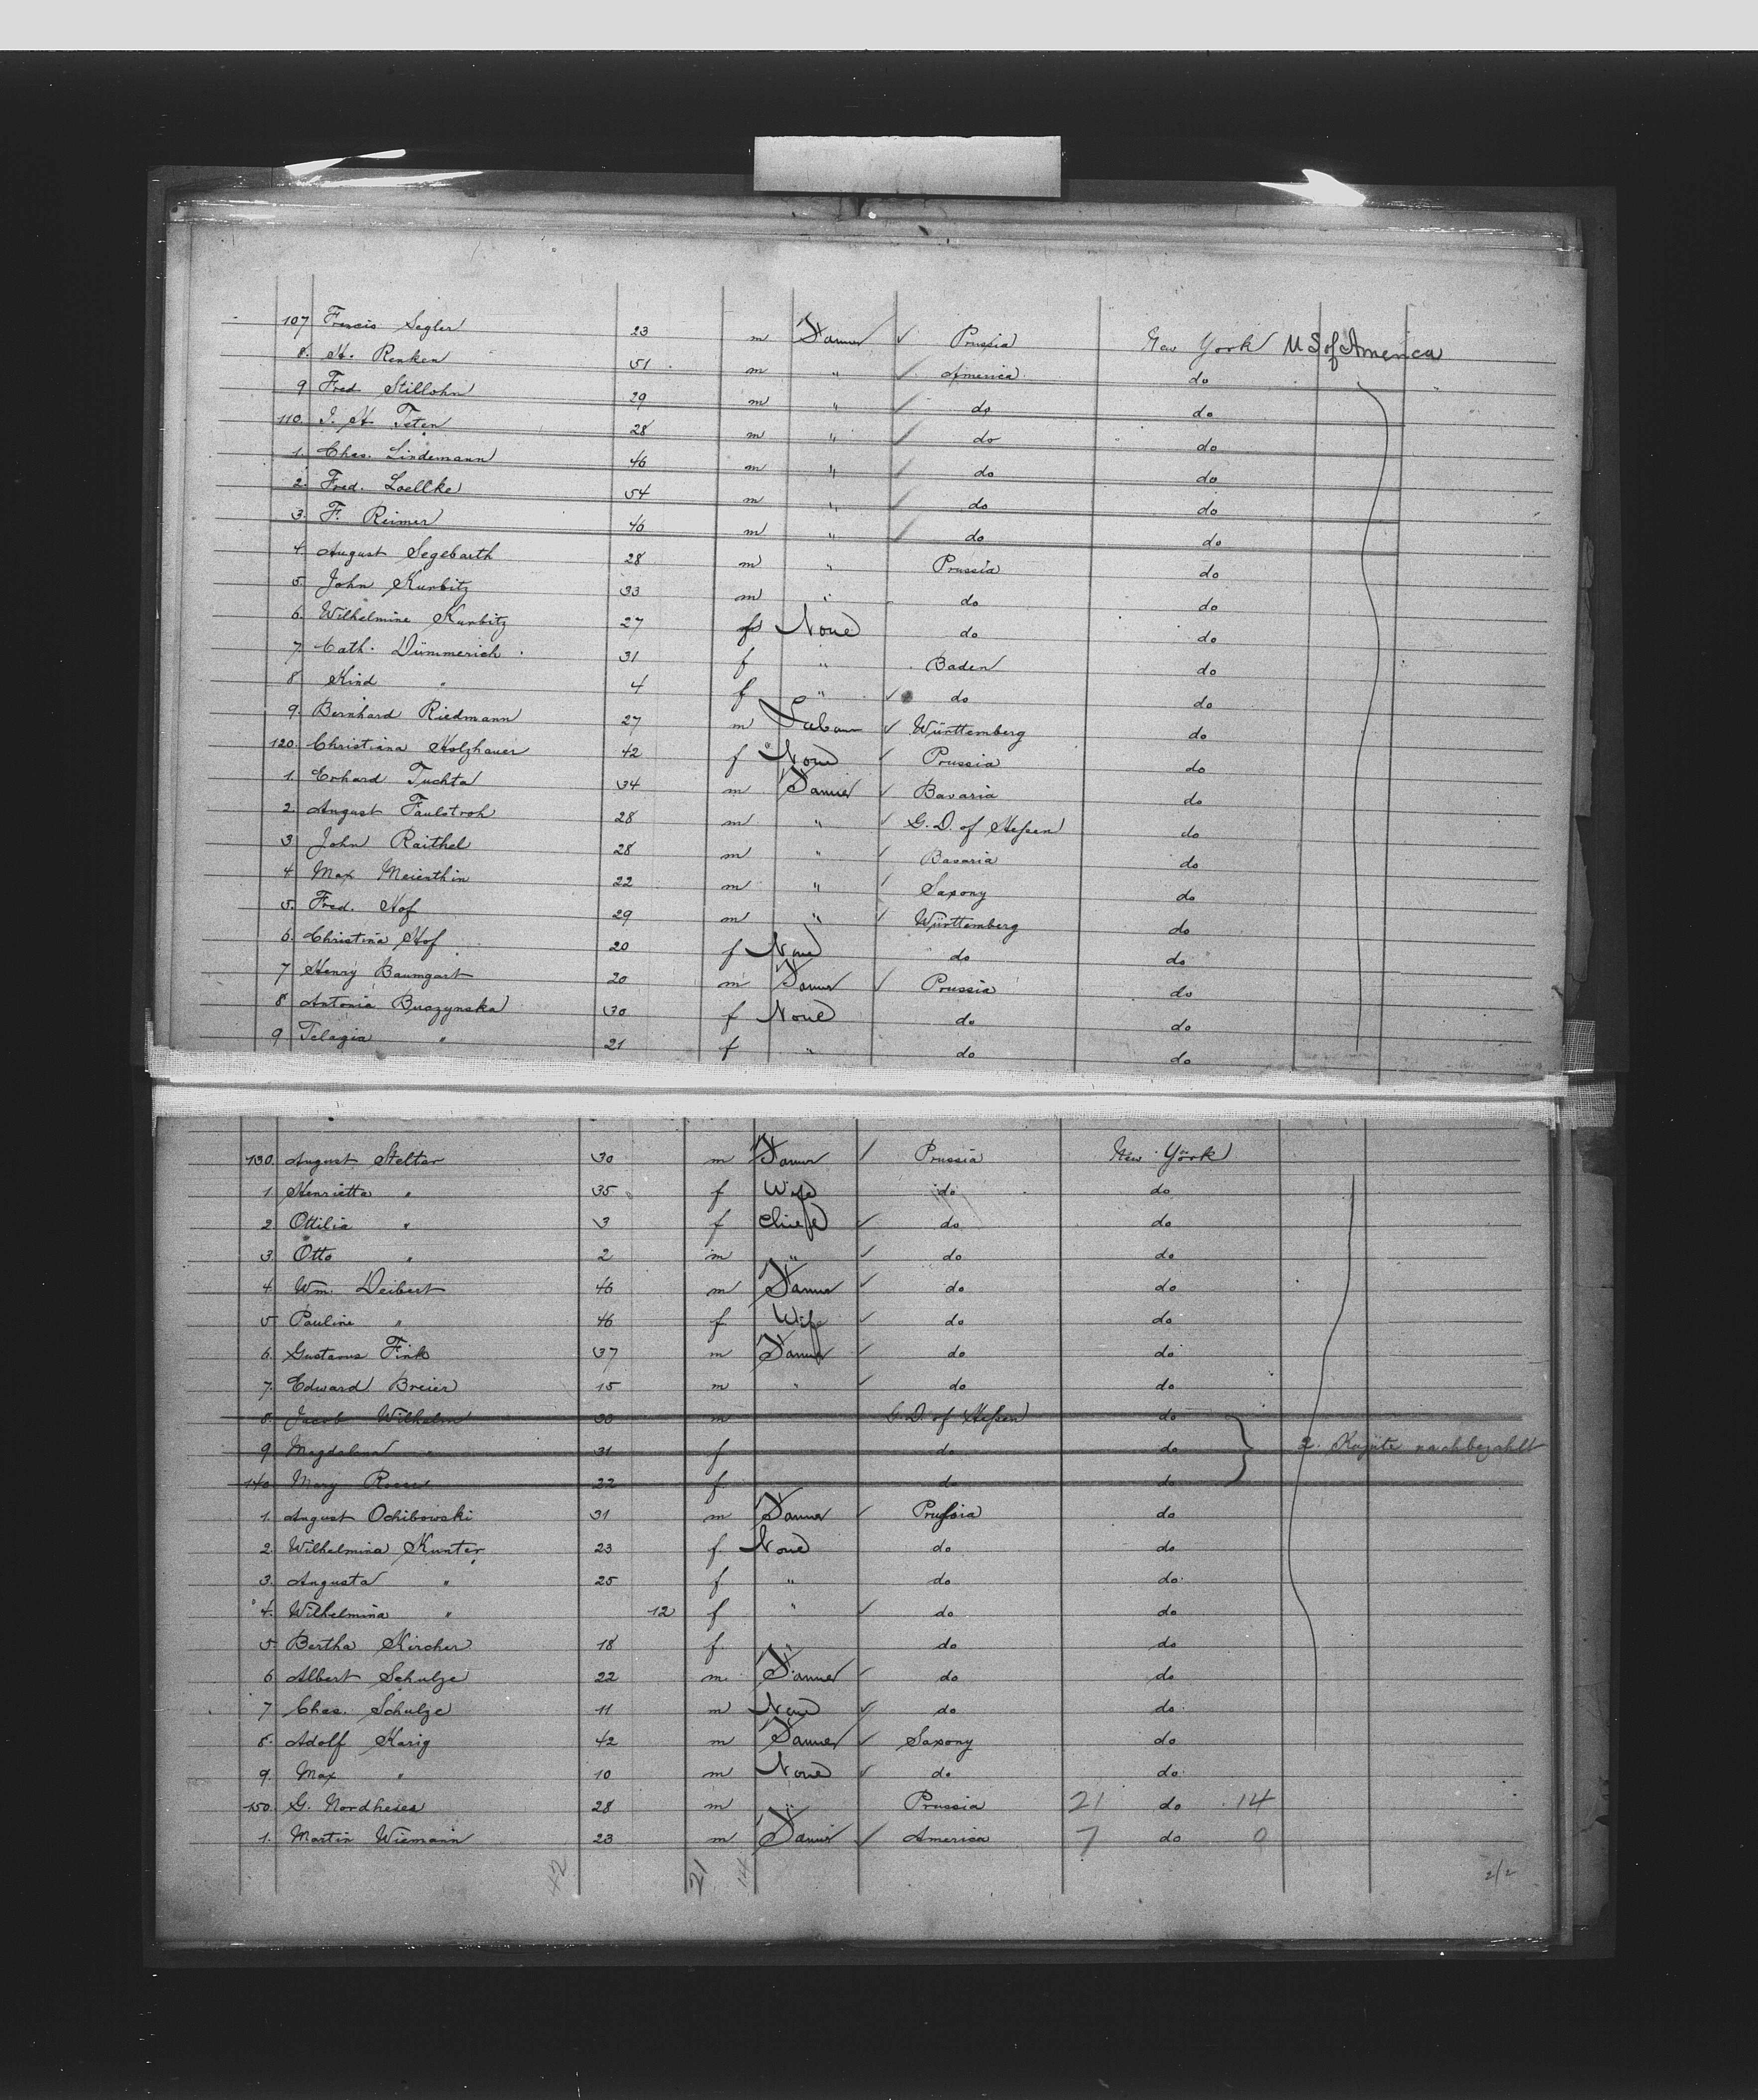 107 Francis Segler 23 m Farmer ✓ Prussia New York U S of America
8. H. Renken 51 m " ✓ America do
9 Fred Stillohn 29 m " ✓ do do
110. J. H. Teten 28 m " ✓ do do
1. Chas. Lindemann 46 m " ✓ do do
2. Fred. Loellke 54 m " ✓ do do
3. F. Reimer 46 m " ✓ do do
4. August Segebarth 28 m " Prussia do
5. John Kurbitz 33 m " do do
6. Wilhelmine Kurbitz 27 f None do do
7. Cath. Dümmerich 31 f " Baden do
8 Kind " 4 f " ✓ do do
9. Bernhard Riedmann 27 m ✓ Württemberg do
120. Christiana Holzhauer 42 f None ✓ Prussia do
1. Erhard Tuchta 34 m Farmer ✓ Bavaria do
2. August Faulstroh 28 m " ✓ G. D. of Hessen do
3 John Raithel 28 m " ✓ Bavaria do
4 Max Meierthin 22 m " ✓ Saxony do
5. Fred. Hof 29 m " ✓ Württemberg do
6. Christina Hof 20 f None do do
7 Henry Baumgart 20 m Farmer ✓ Prussia do
8 Antonia Buszynska 30 f None do do
9 Pelagia " 21 f " do do
130. August Stelter 30 m Farmer ✓ Prussia New York
1. Henrietta " 35 f Wife do do
2 Ottilia " 3 f Child ✓ do do
3. Otto " 2 m " ✓ do do
4. Wm. Deibert 46 m Farmer ✓ do do
5 Pauline " 46 f Wife ✓ do do
6. Gustavus Fink 37 m Farmer ✓ do do
7. Edward Breier 15 m " ✓ do do
8. Jacob Wilhelm 30 m G. D. of Hessen do
9. Magdalena " 31 f do do } 2. Kajüte nachbezahlt
140 Mary 22 f do do
1. August Ochibowski 31 m Farmer ✓ Prussia do
2. Wilhelmina Kunter 23 f None do do
3. Augusta " 25 f " do do
4. Wilhelmina " 12 f " ✓ do do
5 Bertha Kircher 18 f " do do
6 Albert Schulze 22 m Farmer ✓ do do
7 Chas. Schulze 11 m None ✓ do do
8. Adolf Karig 42 m Farmer ✓ Saxony do
9. Max " 10 m None ✓ do do
150. G. 28 m " Prussia 21 do 14
1. Martin Wiemann 23 m Farmer ✓ America 7 do 0
42 21 14 2/2